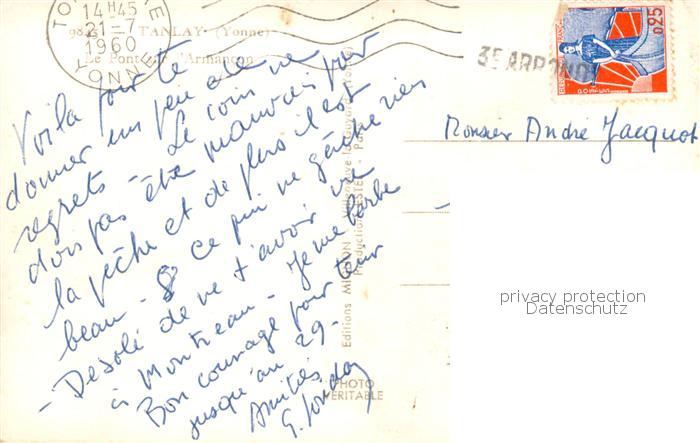 TO NNE
14H45
21-7
1960
YONNE
TANLAY (Yonne)
Le Pont de l'Armançon
3E ARROND
0,25
Voilà pour te
donner un peu de
regrets - Le coin ne
dois pas être mauvais pour
la pêche et de plus il est
beau - & ce qui ne gâche rien
- Désolé de ne t'avoir vu
à Montreau - Je me
Bon courage pour tenir
jusqu'au 29 -
Amitiés
Monsieur André Jacquot
Editions
Reproduction
PHOTO
VÉRITABLE
privacy protection
Datenschutz